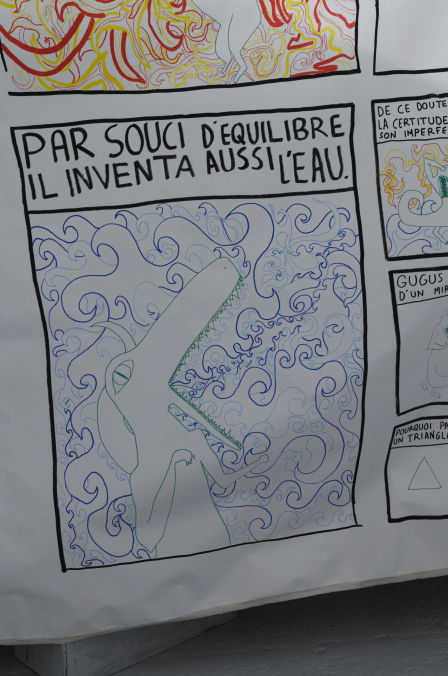 PAR SOUCI D'EQUILIBRE
IL INVENTA AUSSI L'EAU.
DE CE DOUTE
LA CERTITUDE
SON
GUGUS
D'UN
POURQUOI
UN TRIANGLE